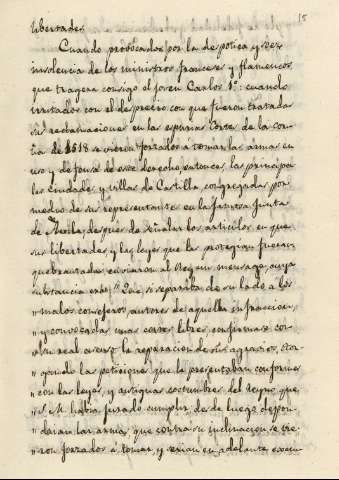 15
libertades.
Cuando provocados por la despotica y
insolencia de los ministros franceses y flamencos
que tragera consigo el joven Carlos 1º: cuando
irritados con el desprecio con que fueron tratadas
sus reclamaciones en las espurias Cortes de la Coru-
ña de 1518 se vieron forzados a tomar las armas en
uso y defensa de ese derecho, entonces, las principa-
les ciudades y villas de Castilla congregadas por
medio de sus representantes en la famosa Junta
de Avila, despues de señalar los articulos en que
sus libertades y las leyes que las protegian fueran
quebrantadas, enviaron al Rey un mensage cuya
substancia era: "Que si separaba de su lado a los
" malos consejeros autores de aquella infraccion,
" y convocadas unas cortes libres confirmase con
" su real acuerdo la reparacion de sus agravios, otor-
" gando las peticiones que le presentaban conformes
" con las leyes, y antiguas costumbres del Reyno que
" S. M. habia jurado cumplir, desde luego depon-
" drian las armas, que contra su inclinacion se vie-
" ron forzados á tomar, y serian en adelante